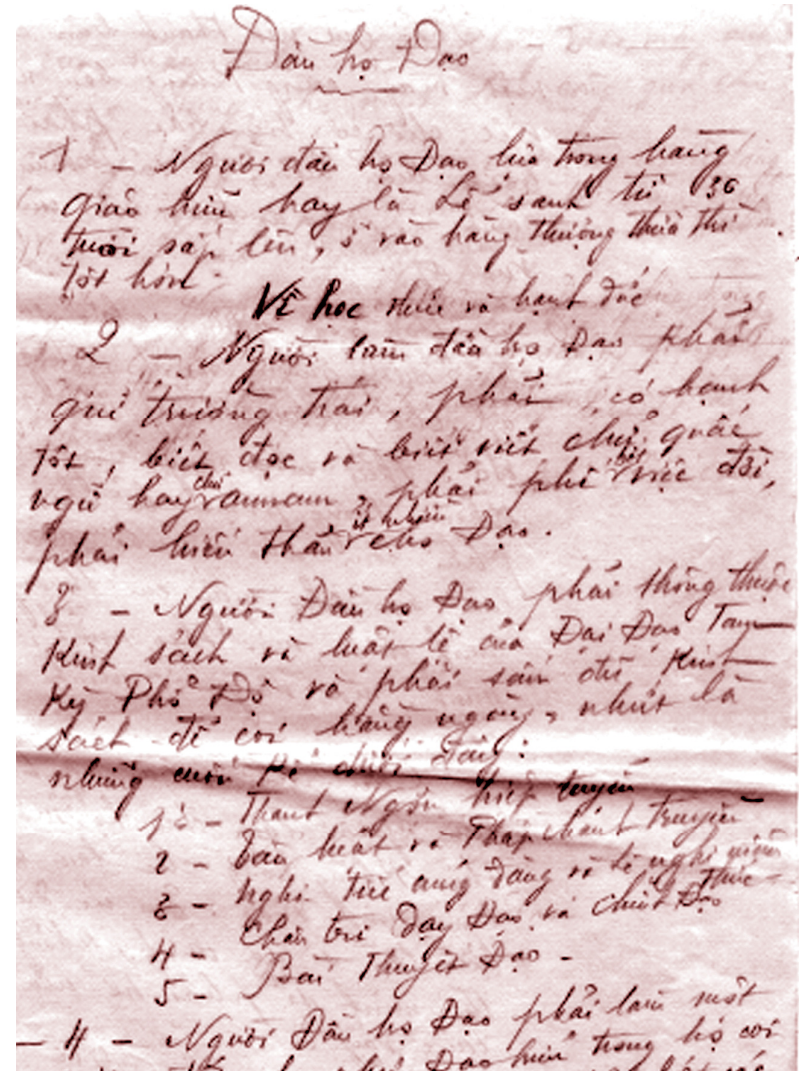 Đầu họ Đạo
1 - Người đầu họ Đạo lựa trong hàng
giáo hữu hay là Lễ sanh từ 30
tuổi sắp lên, ở vào hàng thượng thừa thì
tốt hơn
Về học thức và hạnh đức
2 - Người làm đầu họ Đạo phải
qui trường trai, phải có hạnh
tốt, biết đọc và biết viết chữ quốc
ngữ hay chữ annam, phải phế hết việc đời,
phải hiến thân ít nhiều cho Đạo.
3 - Người Đầu họ Đạo phải thông thuộc
Kinh sách và luật lệ của Đại Đạo Tam
Kỳ Phổ Độ và phải sắm đủ Kinh
sách để coi hằng ngày, nhứt là
những cuốn kể dưới đây:
1 - Thánh Ngôn hiệp tuyển
2 - Tân luật và Pháp chánh truyền
3 - Nghi tiết cúng đàng và lễ nghi
4 - Châu tri dạy Đạo và chiết Đạo
5 - Bài Thuyết Đạo -
- 4 - Người Đầu họ Đạo phải làm một
Đạo hữu trong họ coi